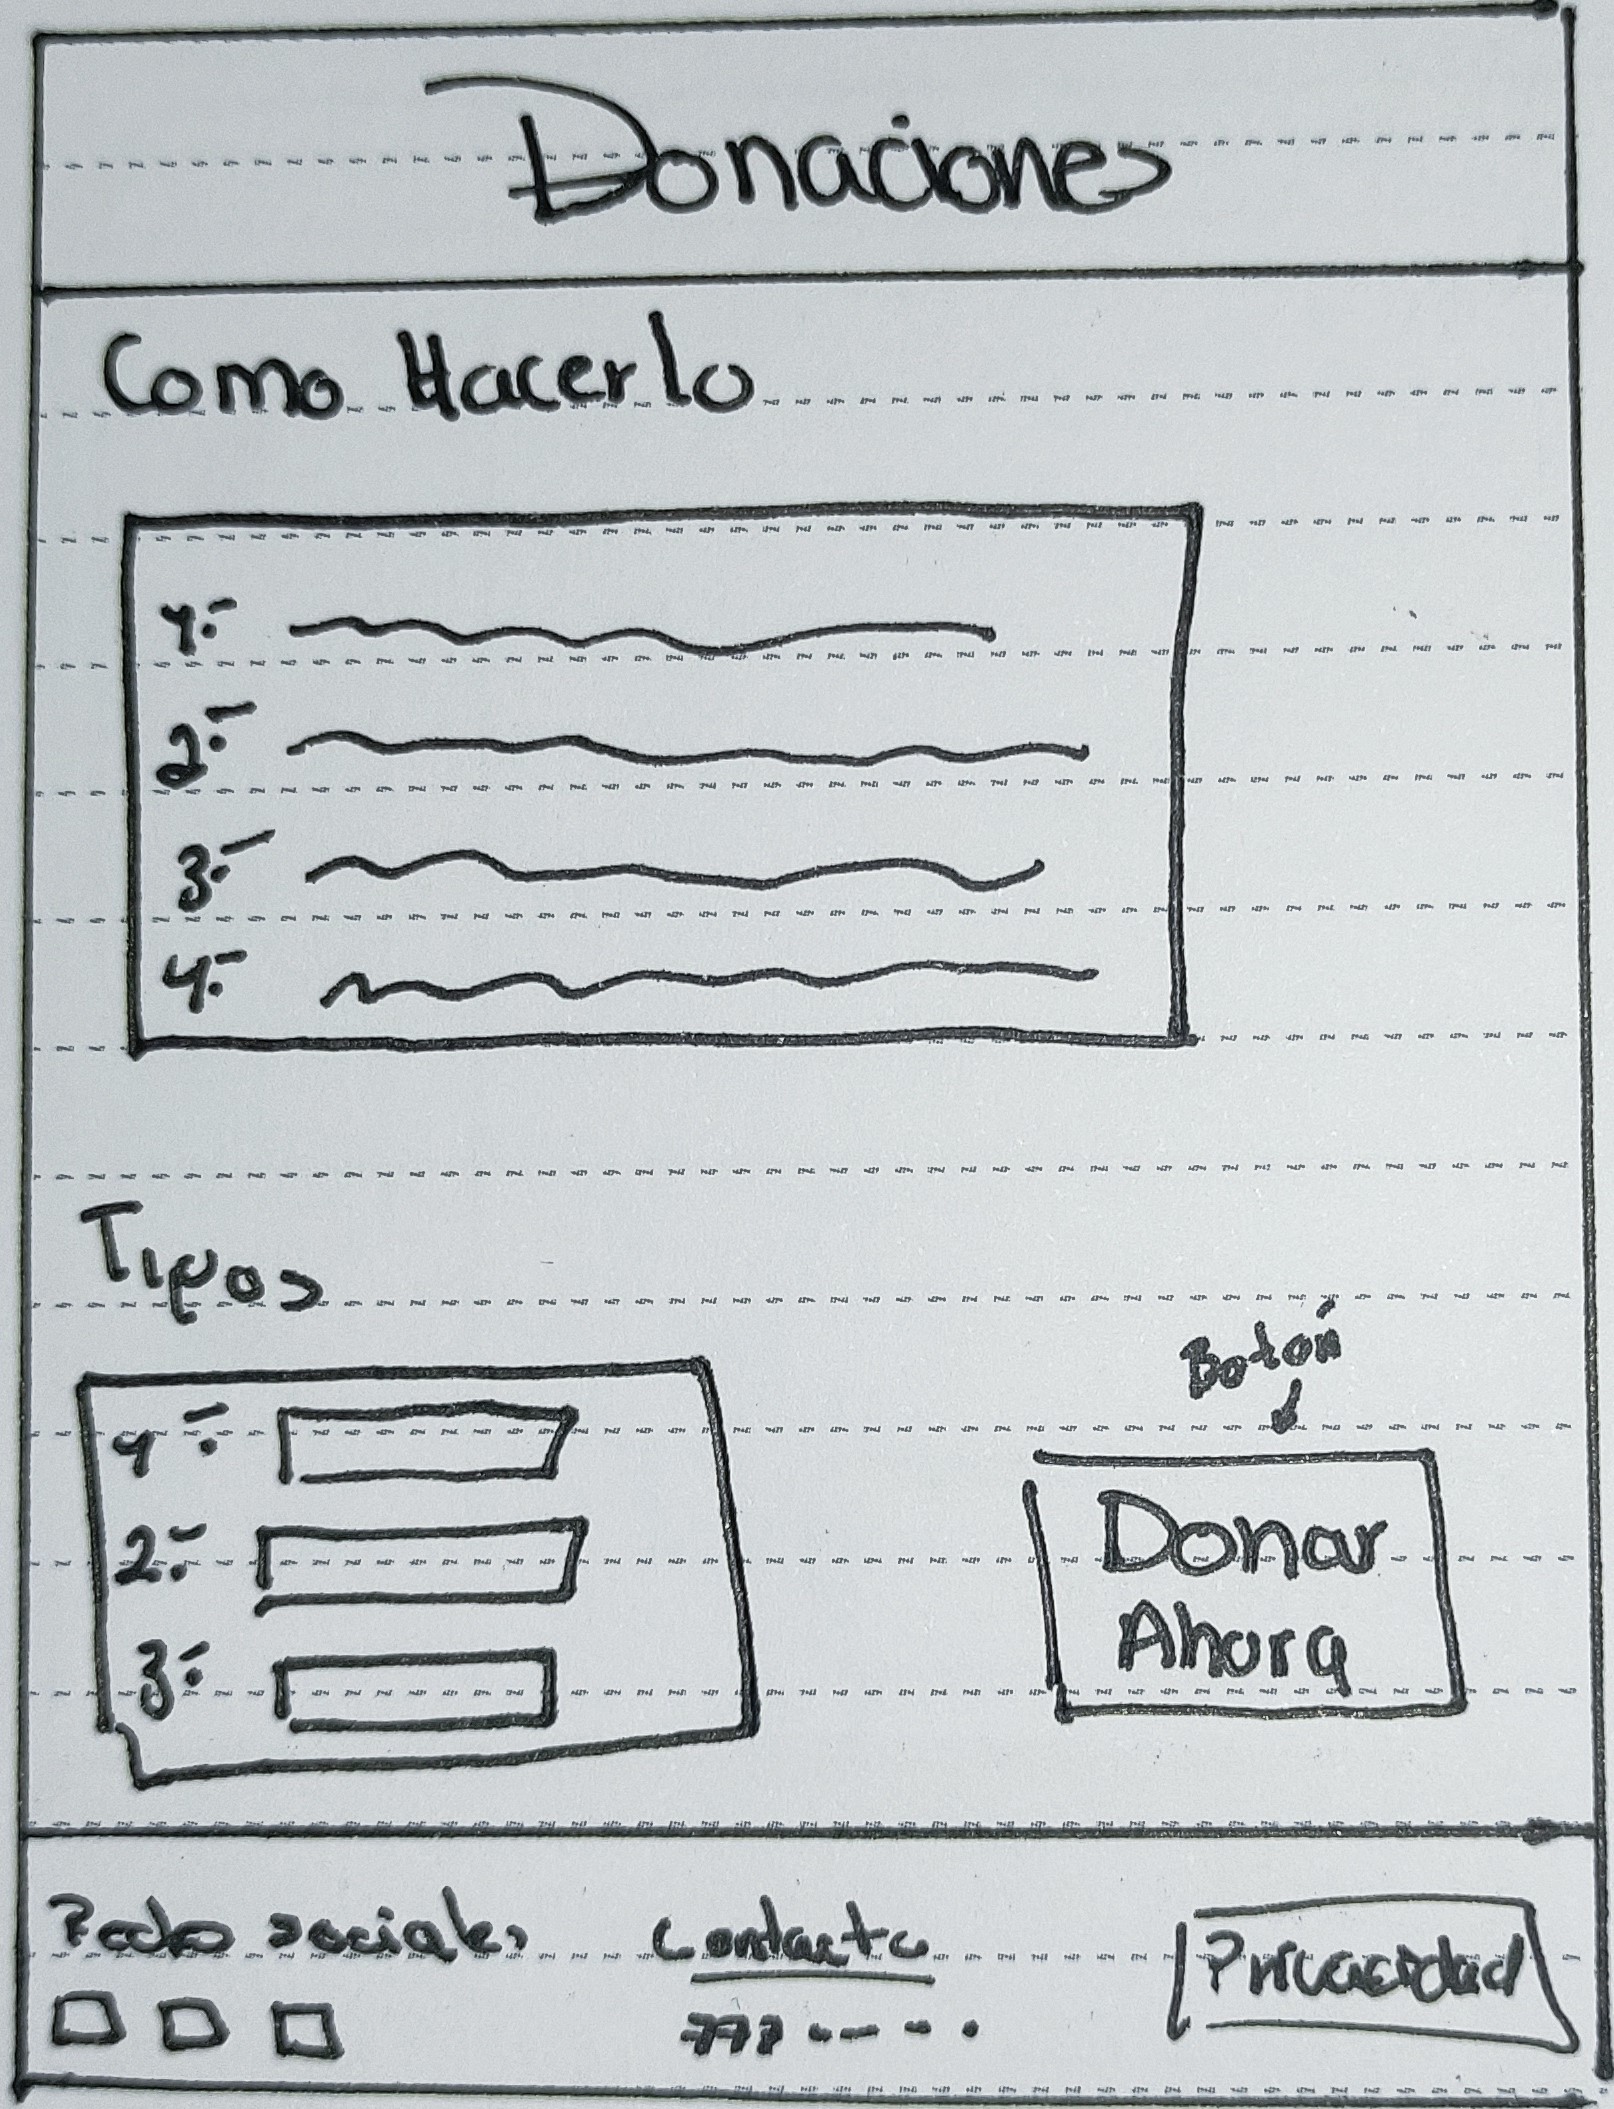 Donaciones
Como Hacerlo
1.-
2.-
3.-
4.-
Tipos
1.-
2.-
3.-
Botón
Donar
Ahora
Redes sociales
Contacto
777 - - - -
Privacidad